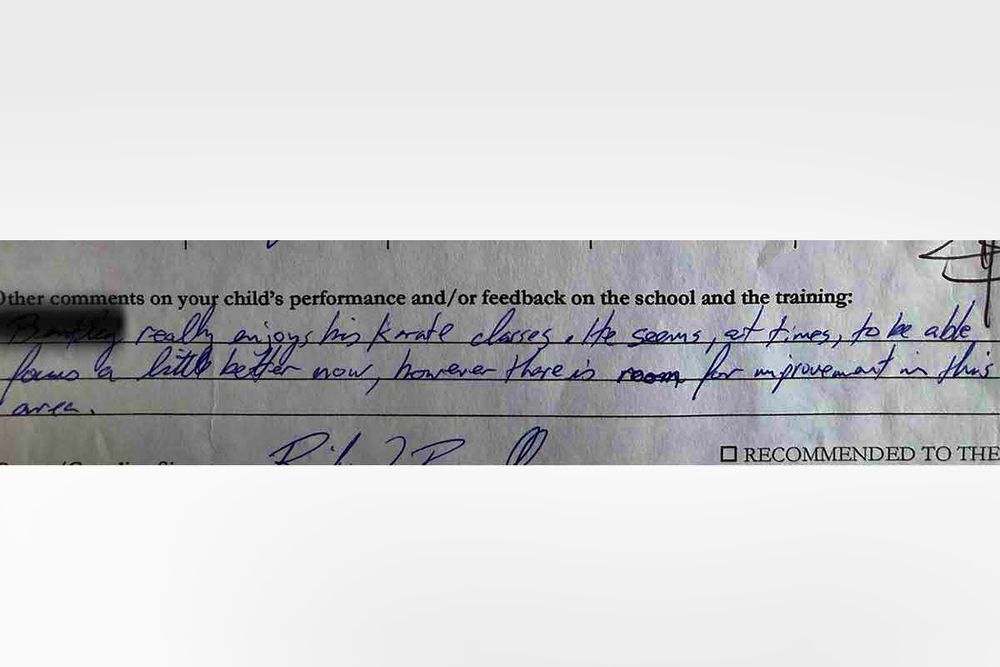 Other comments on your child's performance and/or feedback on the school and the training:
really enjoys his Karate classes. He seems, at times, to be able
focus a little better now, however there is room for improvement in this
area.
RECOMMENDED TO THE